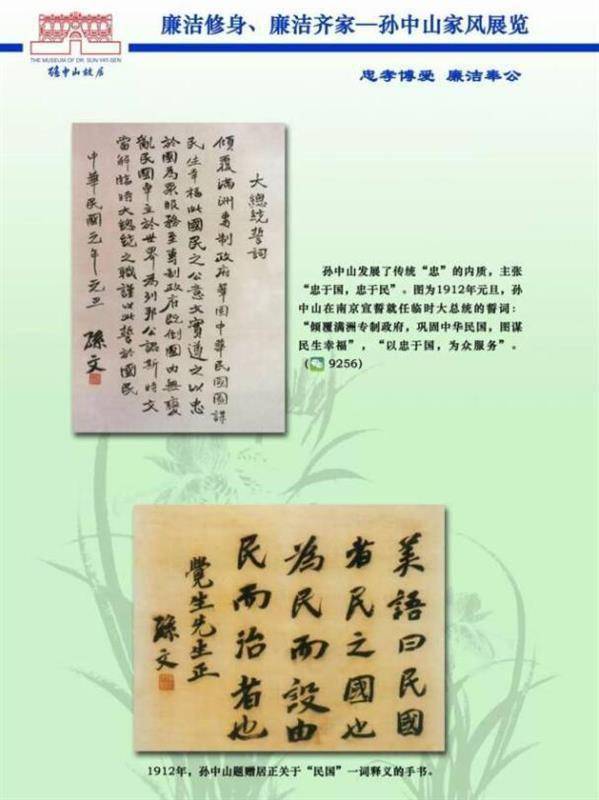 廉洁修身、廉洁齐家—孙中山家风展览
THE MUSEUM OF DR. SUN YAT-SEN
孫中山故居
忠孝博爱 廉洁奉公
大總統誓詞
傾覆滿洲專制政府鞏固中華民國圖謀
民生幸福此國民之公意文實遵之以忠
於國為眾服務至專制政府既倒國內無變
亂民國卓立於世界為列邦公認斯時文
當解臨時大總統之職謹以此誓於國民
中華民國元年元旦
孫文
孙中山发展了传统“忠”的内质，主张
“忠于国，忠于民”。图为1912年元旦，孙
中山在南京宣誓就任临时大总统的誓词：
“倾覆满洲专制政府，巩固中华民国，图谋
民生幸福”，“以忠于国，为众服务”。
（ 9256）
美語曰民國
者民之國也
為民而設由
民而治者也
覺生先生正
孫文
1912年，孙中山题赠居正关于“民国”一词释义的手书。